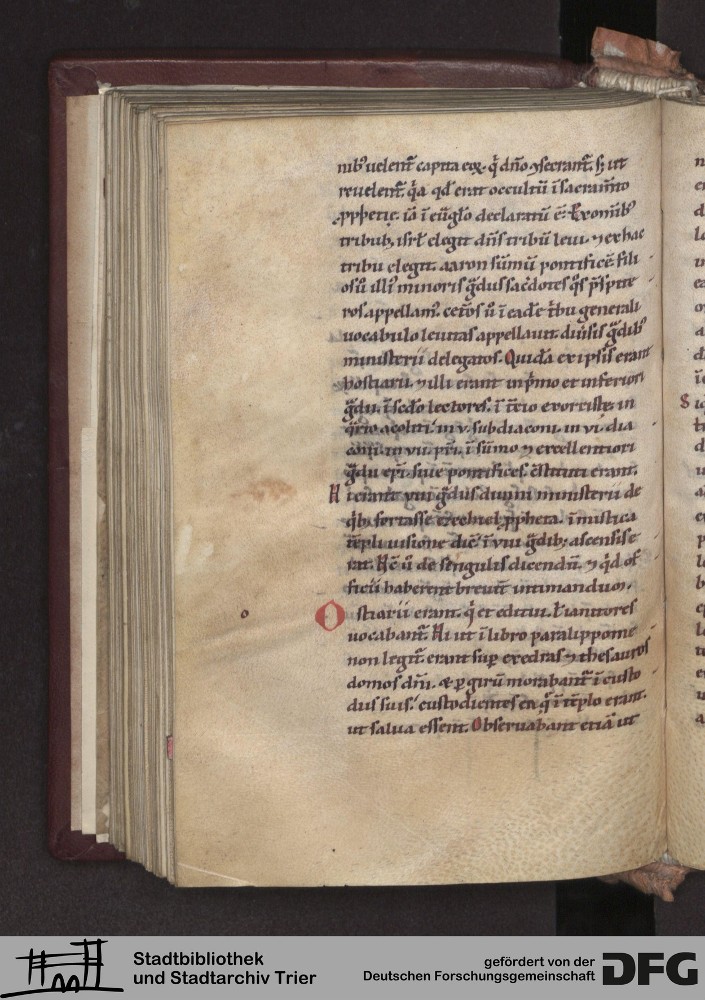 nibꝰ uelent᷑ capita eoꝝ. q̇ dn̄o ↄsecrant᷑. sꝫ ut
reuelent᷑. q̇a qd̓ erat occultū ī sacram̄to
ꝓph̓etic̨. iā ī eūgl̓o declaratū ē. Ex om̄ibꝰ
tribubꝫ isrl̓ elegit dn̄s tribū leui. ⁊ ex hac
tribu elegit aaron sūmū pontificē. fili
osū illiꝰ minoris g̊dus sac̓dotes q̊s p̄sbite
ros appellam᷒. cet̓os ū ī ead̓e t̓bu generali
uocabulo leuitas appellauit. diuisis g̊dibꝰ
ministerii delegatos. Quidā ex ipsis erant
hostiarii. ⁊ illi erant in p̓mo et inferiori
g̊du. ī sc̄do lectores. ī t̓cio exorcistę. in
q̊rto acoliti. in v. subdiaconi. in vi. dia
coni. in vii. pr̄i. ī sūmo ⁊ excellentiori
g̊du ep̄i. siue pontifices. c̄stituti erant.
Hi erant viii g̊dus diuini ministerii de
q̓bꝫ fortasse ezechiel ꝓpheta. ī mistica
tēpli uisione dic̄ ī viii g̊dibꝫ ascensis e
rat. Nc̄ ū de singulis dicendū. ⁊ q̓d of
ficii haberent breuit̓ intimanduꝫ.
o Ostiarii erant. q̓ et editui. ł ianitores
uocabant᷑. Hi ut ī libro paralippome
non legit᷑. erant sup̱ exedras ⁊ thesauros
domꝰ dn̄i. & ꝑ girū morabant᷑ ī custo
diis suis. custodientes ea q̄ ī tēplo erant.
ut salua essent. Obseruabant etiā ut
Stadtbibliothek
und Stadtarchiv Trier
gefördert von der
Deutschen Forschungsgemeinschaft
DFG